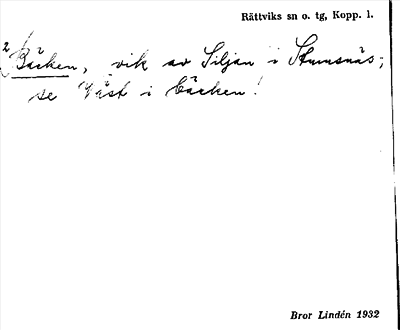 Rättviks sn o. tg, Kopp. l.
2 Bäcken, vik av Siljan i Stumsnäs;
se Väst i bäcken!
Bror Lindén 1932